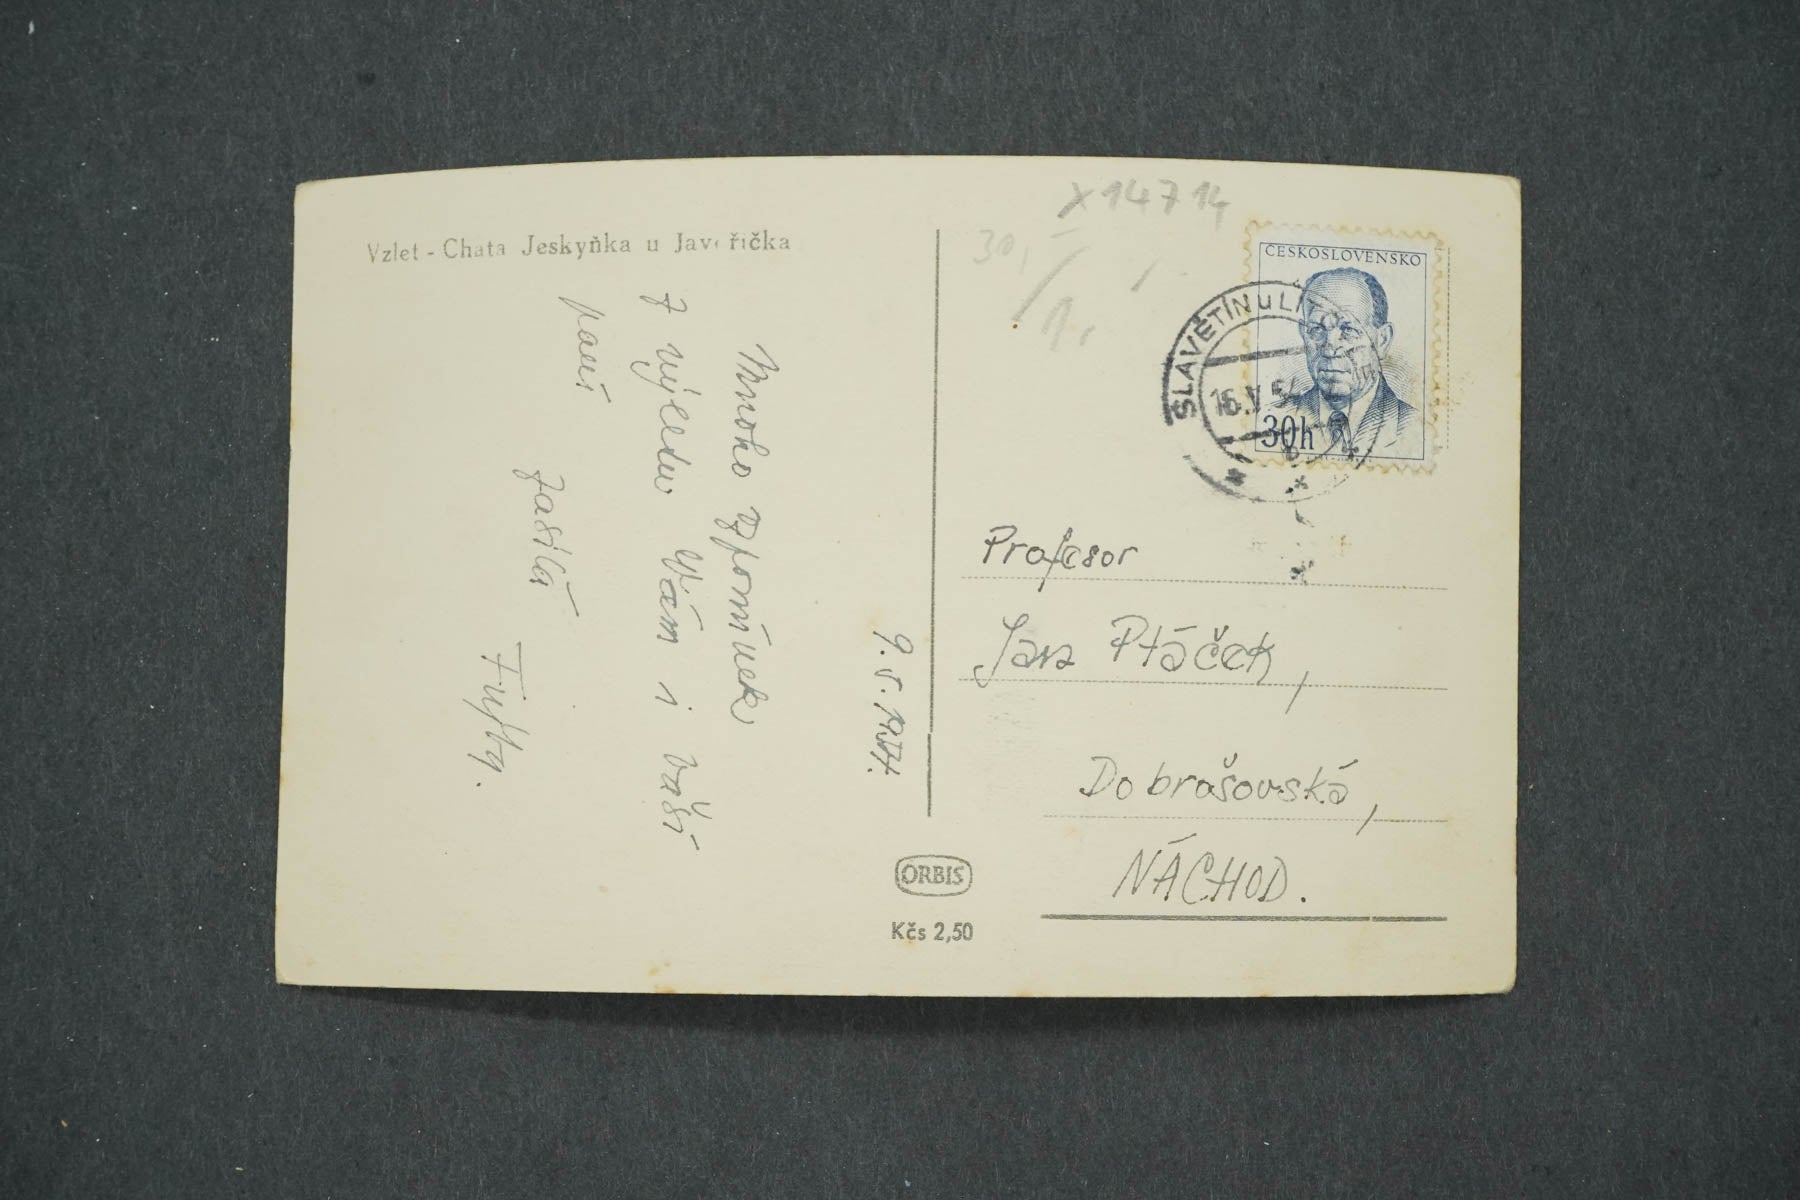 Vzlet - Chata Jeskyňka u Javoříčka
9. 5. 1954.
Mnoho vzpomínek
z výletu Vám i vaší
paní
zasílá
x14714
30,
1,
ČESKOSLOVENSKO
30h
SLAVĚTÍN u LIT
V 54
Profesor
Jan Ptáček,
Dobrošovská,
NÁCHOD.
ORBIS
Kčs 2,50